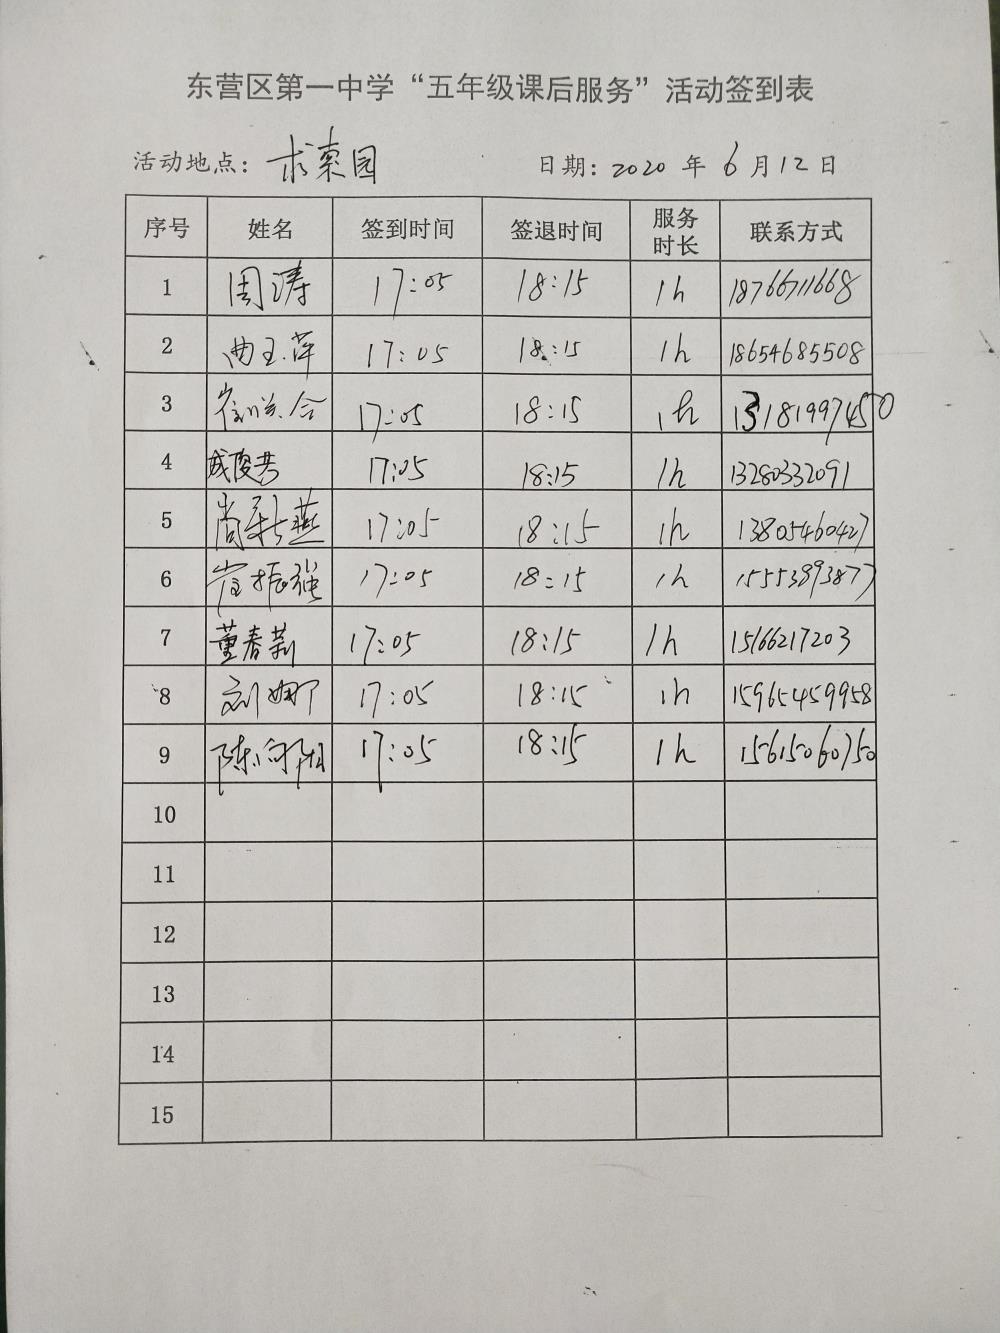 东营区第一中学“五年级课后服务”活动签到表
活动地点: 求索园 日期: 2020 年 6 月 12 日
序号 姓名 签到时间 签退时间 服务时长 联系方式
1 周涛 17:05 18:15 1h 18766711668
2 曲玉萍 17:05 18:15 1h 18654685508
3 17:05 18:15 1h 13181997450
4 成俊芳 17:05 18:15 1h 13280332091
5 尚新燕 17:05 18:15 1h 13805460427
6 崔振强 17:05 18:15 1h 15553893877
7 董春莉 17:05 18:15 1h 15166217203
8 刘娜 17:05 18:15 1h 15965459958
9 陈向阳 17:05 18:15 1h 15615060750
10
11
12
13
14
15